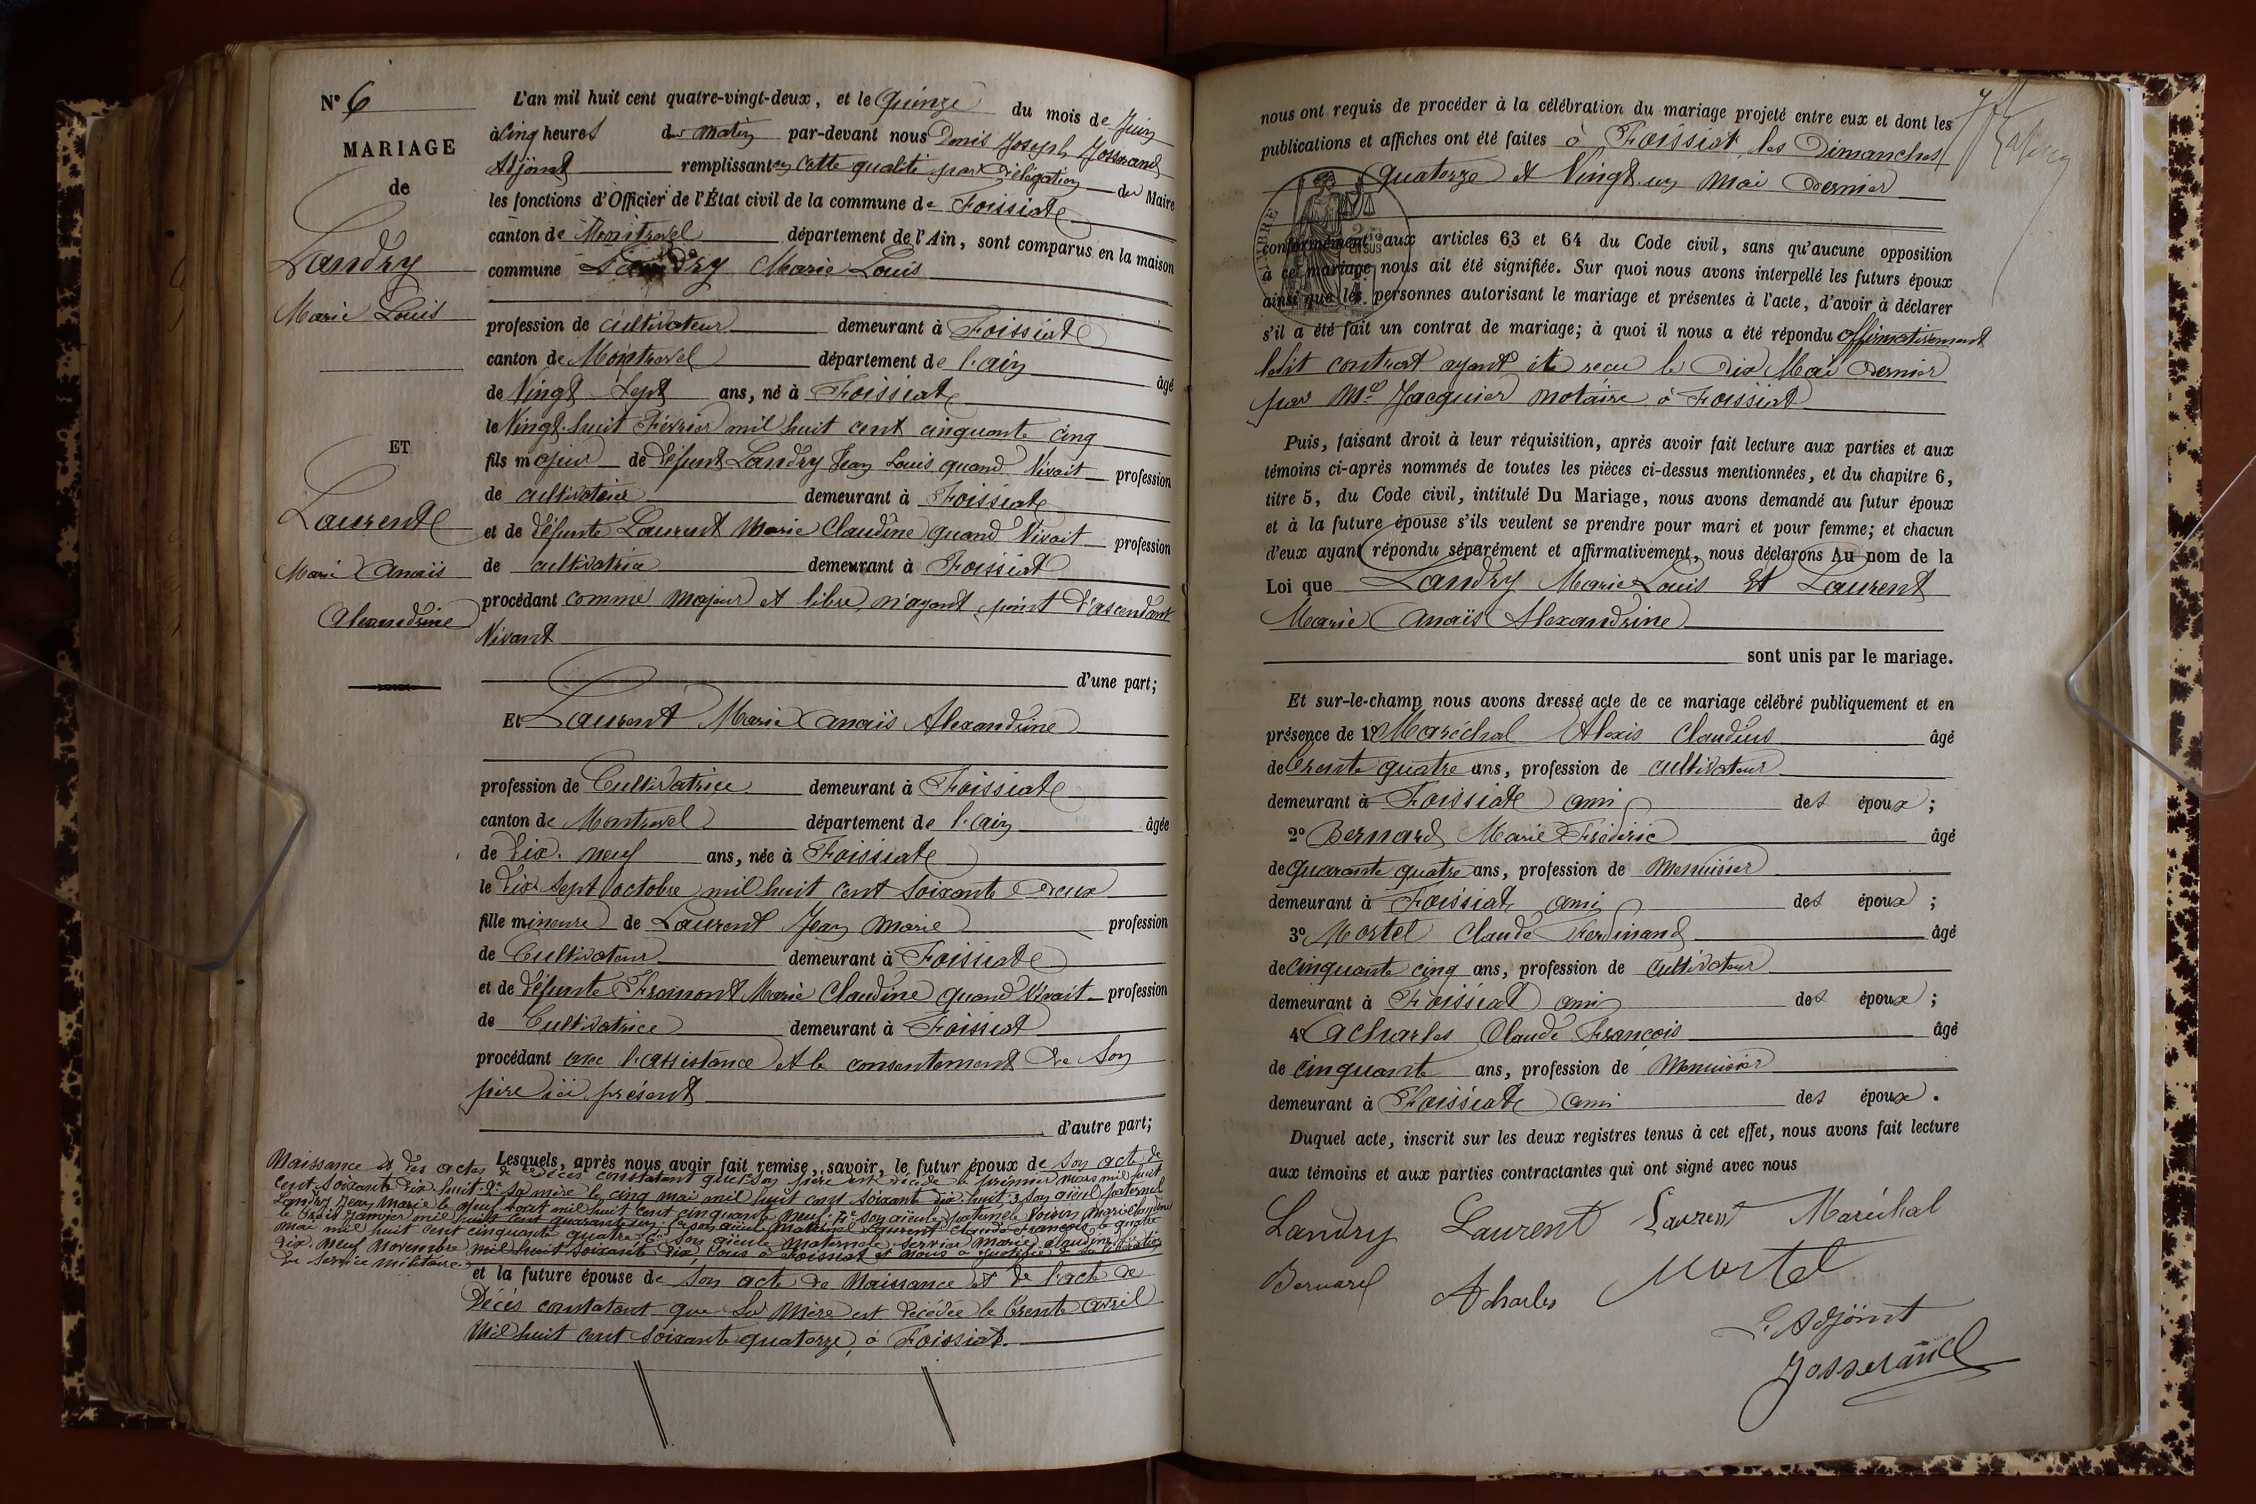 N° 6
MARIAGE
de
Landry
Marie Louis
ET
Laurent
Marie Anaïs
Alexandrine
L'an mil huit cent quatre-vingt-deux, et le quinze du mois de Juin
à cinq heures du matin par-devant nous Denis Joseph Josserand
Adjoint remplissant en cette qualité par délégation du Maire
les fonctions d'Officier de l'État civil de la commune de Foissiat
canton de Montrevel département de l'Ain, sont comparus en la maison
commune Landry Marie Louis
profession de cultivateur demeurant à Foissiat
canton de Montrevel département de l'ain âgé
de Vingt Sept ans, né à Foissiat
le Vingt huit Février mil huit cent cinquante cinq
fils majeur de défunt Landry Jean Louis quand Vivait profession
de cultivateur demeurant à Foissiat
et de défunte Laurent Marie Claudine quand Vivait profession
de cultivatrice demeurant à Foissiat
procédant comme majeur et libre n'ayant point d'ascendant
Vivant
d'une part;
Et Laurent Marie Anaïs Alexandrine
profession de Cultivatrice demeurant à Foissiat
canton de Montrevel département de l'ain âgée
de dix. neuf ans, née à Foissiat
le dix Sept octobre mil huit cent soixante deux
fille mineure de Laurent Jean Marie profession
de Cultivateur demeurant à Foissiat
et de défunte Fromont Marie Claudine quand Vivait profession
de Cultivatrice demeurant à Foissiat
procédant avec l'assistance et le consentement de Son
père ici présent
d'autre part;
Lesquels, après nous avoir fait remise, savoir, le futur époux de son acte de
Naissance et des actes de décès constatant que son père est décédé le premier mars mil huit
cent soixante dix huit 2° sa mère le cinq mai mil huit cent soixante dix huit, 3° son aïeul paternel
Landry Jean Marie le neuf août mil huit cent cinquante neuf: 4° son aïeule paternelle Voisin Marie Claudine
le trois Janvier mil huit cent quarante un: 5° son aïeul Maternel Laurent Claude François le quatre
mai mil huit cent cinquante quatre 6° son aïeule maternelle Marie Claudine le
dix. neuf Novembre mil huit soixante dix, tous à Foissiat et nous a justifié de sa libération
du service militaire.
et la future épouse de son acte de Naissance et de l'acte de
Décès constatant que Sa Mère est décédée le trente avril
Mil huit cent soixante quatorze, à Foissiat.
nous ont requis de procéder à la célébration du mariage projeté entre eux et dont les
publications et affiches ont été faites à Foissiat, les Dimanches
quatorze et Vingt un Mai dernier
conformément aux articles 63 et 64 du Code civil, sans qu'aucune opposition
à ce mariage nous ait été signifiée. Sur quoi nous avons interpellé les futurs époux
ainsi que les personnes autorisant le mariage et présentes à l'acte, d'avoir à déclarer
s'il a été fait un contrat de mariage; à quoi il nous a été répondu affirmativement
ledit contrat ayant été reçu le dix Mai dernier
par Me Jacquier notaire à Foissiat
Puis, faisant droit à leur réquisition, après avoir fait lecture aux parties et aux
témoins ci-après nommés de toutes les pièces ci-dessus mentionnées, et du chapitre 6,
titre 5, du Code civil, intitulé Du Mariage, nous avons demandé au futur époux
et à la future épouse s'ils veulent se prendre pour mari et pour femme; et chacun
d'eux ayant répondu séparément et affirmativement, nous déclarons Au nom de la
Loi que Landry Marie Louis Et Laurent
Marie Anaïs Alexandrine
sont unis par le mariage.
Et sur-le-champ nous avons dressé acte de ce mariage célébré publiquement et en
présence de 1° Maréchal Alexis Claudius âgé
de trente quatre ans, profession de cultivateur
demeurant à Foissiat ami des époux;
2° Bernard Marie Fréderic âgé
de quarante quatre ans, profession de Menuisier
demeurant à Foissiat ami des époux;
3° Mortel Claude Ferdinand âgé
de cinquante cinq ans, profession de cultivateur
demeurant à Foissiat ami des époux;
4° Acharles Claude François âgé
de cinquante ans, profession de Menuisier
demeurant à Foissiat ami des époux.
Duquel acte, inscrit sur les deux registres tenus à cet effet, nous avons fait lecture
aux témoins et aux parties contractantes qui ont signé avec nous
Landry Laurent Laurent Maréchal
Bernard Acharles Mortel
L'Adjoint
Josserand